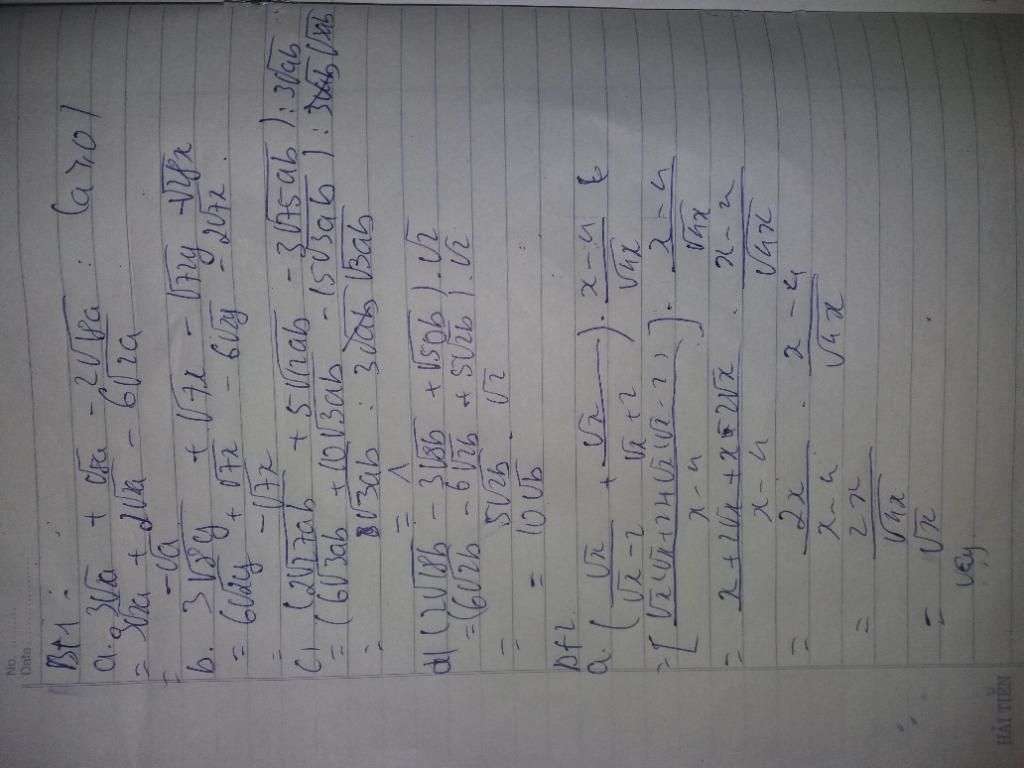 No.
Date
Bt 1:
a. 3√2a + √8a - 2√18a (a≥0)
= 3√2a + 2√2a - 6√2a
= -√2a
b. 3√8y + √7x - √72y - √28x
= 6√2y + √7x - 6√2y - 2√7x
= -√7x
c, (2√27ab + 5√12ab - 3√75ab) : 3√ab
= (6√3ab + 10√3ab - 15√3ab) :
= √3ab : √3ab
= 1
d, (2√18b - 3√8b + √50b).√2
= (6√2b - 6√2b + 5√2b).√2
= 5√2b . √2
= 10√b
Bt 2
a. (√x/(√x-2) + √x/(√x+2)) . (x-4)/√4x
= [(√x(√x+2)+√x(√x-2))/(x-4)] . (x-4)/√4x
= (x+2√x+x-2√x)/(x-4) . (x-4)/√4x
= 2x/(x-4) . (x-4)/√4x
= 2x/√4x
= √x
Vậy
HẢI TIẾN